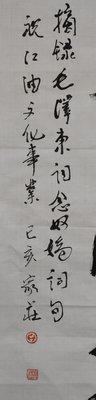 摘録毛澤東詞念奴嬌詞句
祝江油文化事業 己亥 家莊